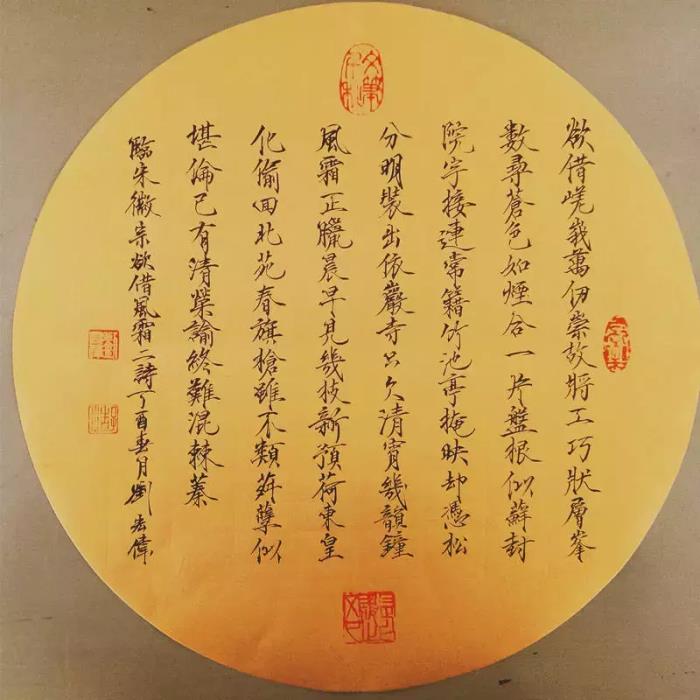 欲借嵯峩萬仞崇故將工巧狀層峯
數尋蒼色如煙合一片盤根似蘚封
院宇接連常籍竹池亭掩映却憑松
分明裝出依巖寺只欠清宵幾韻鐘
風霜正臘晨早見幾枝新預荷東皇
化偷回北苑春旗槍雖不類荈蘖似
堪倫已有清榮諭終難混棘蓁
臨宋徽宗欲借風霜二詩丁酉春月劉宏偉